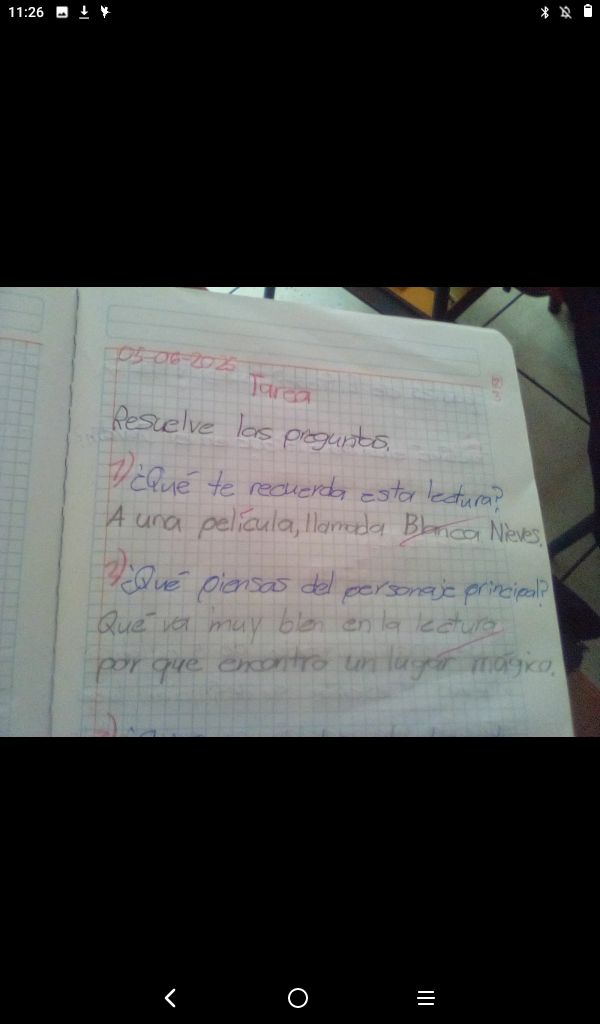 11:26
05-06-2025
Tarea
Resuelve las preguntas.
1) ¿Qué te recuerda esta lectura?
A una película, llamada Blanca Nieves.
2) ¿Qué piensas del personaje principal?
Qué va muy bien en la lectura
por que encontro un lugar mágico.